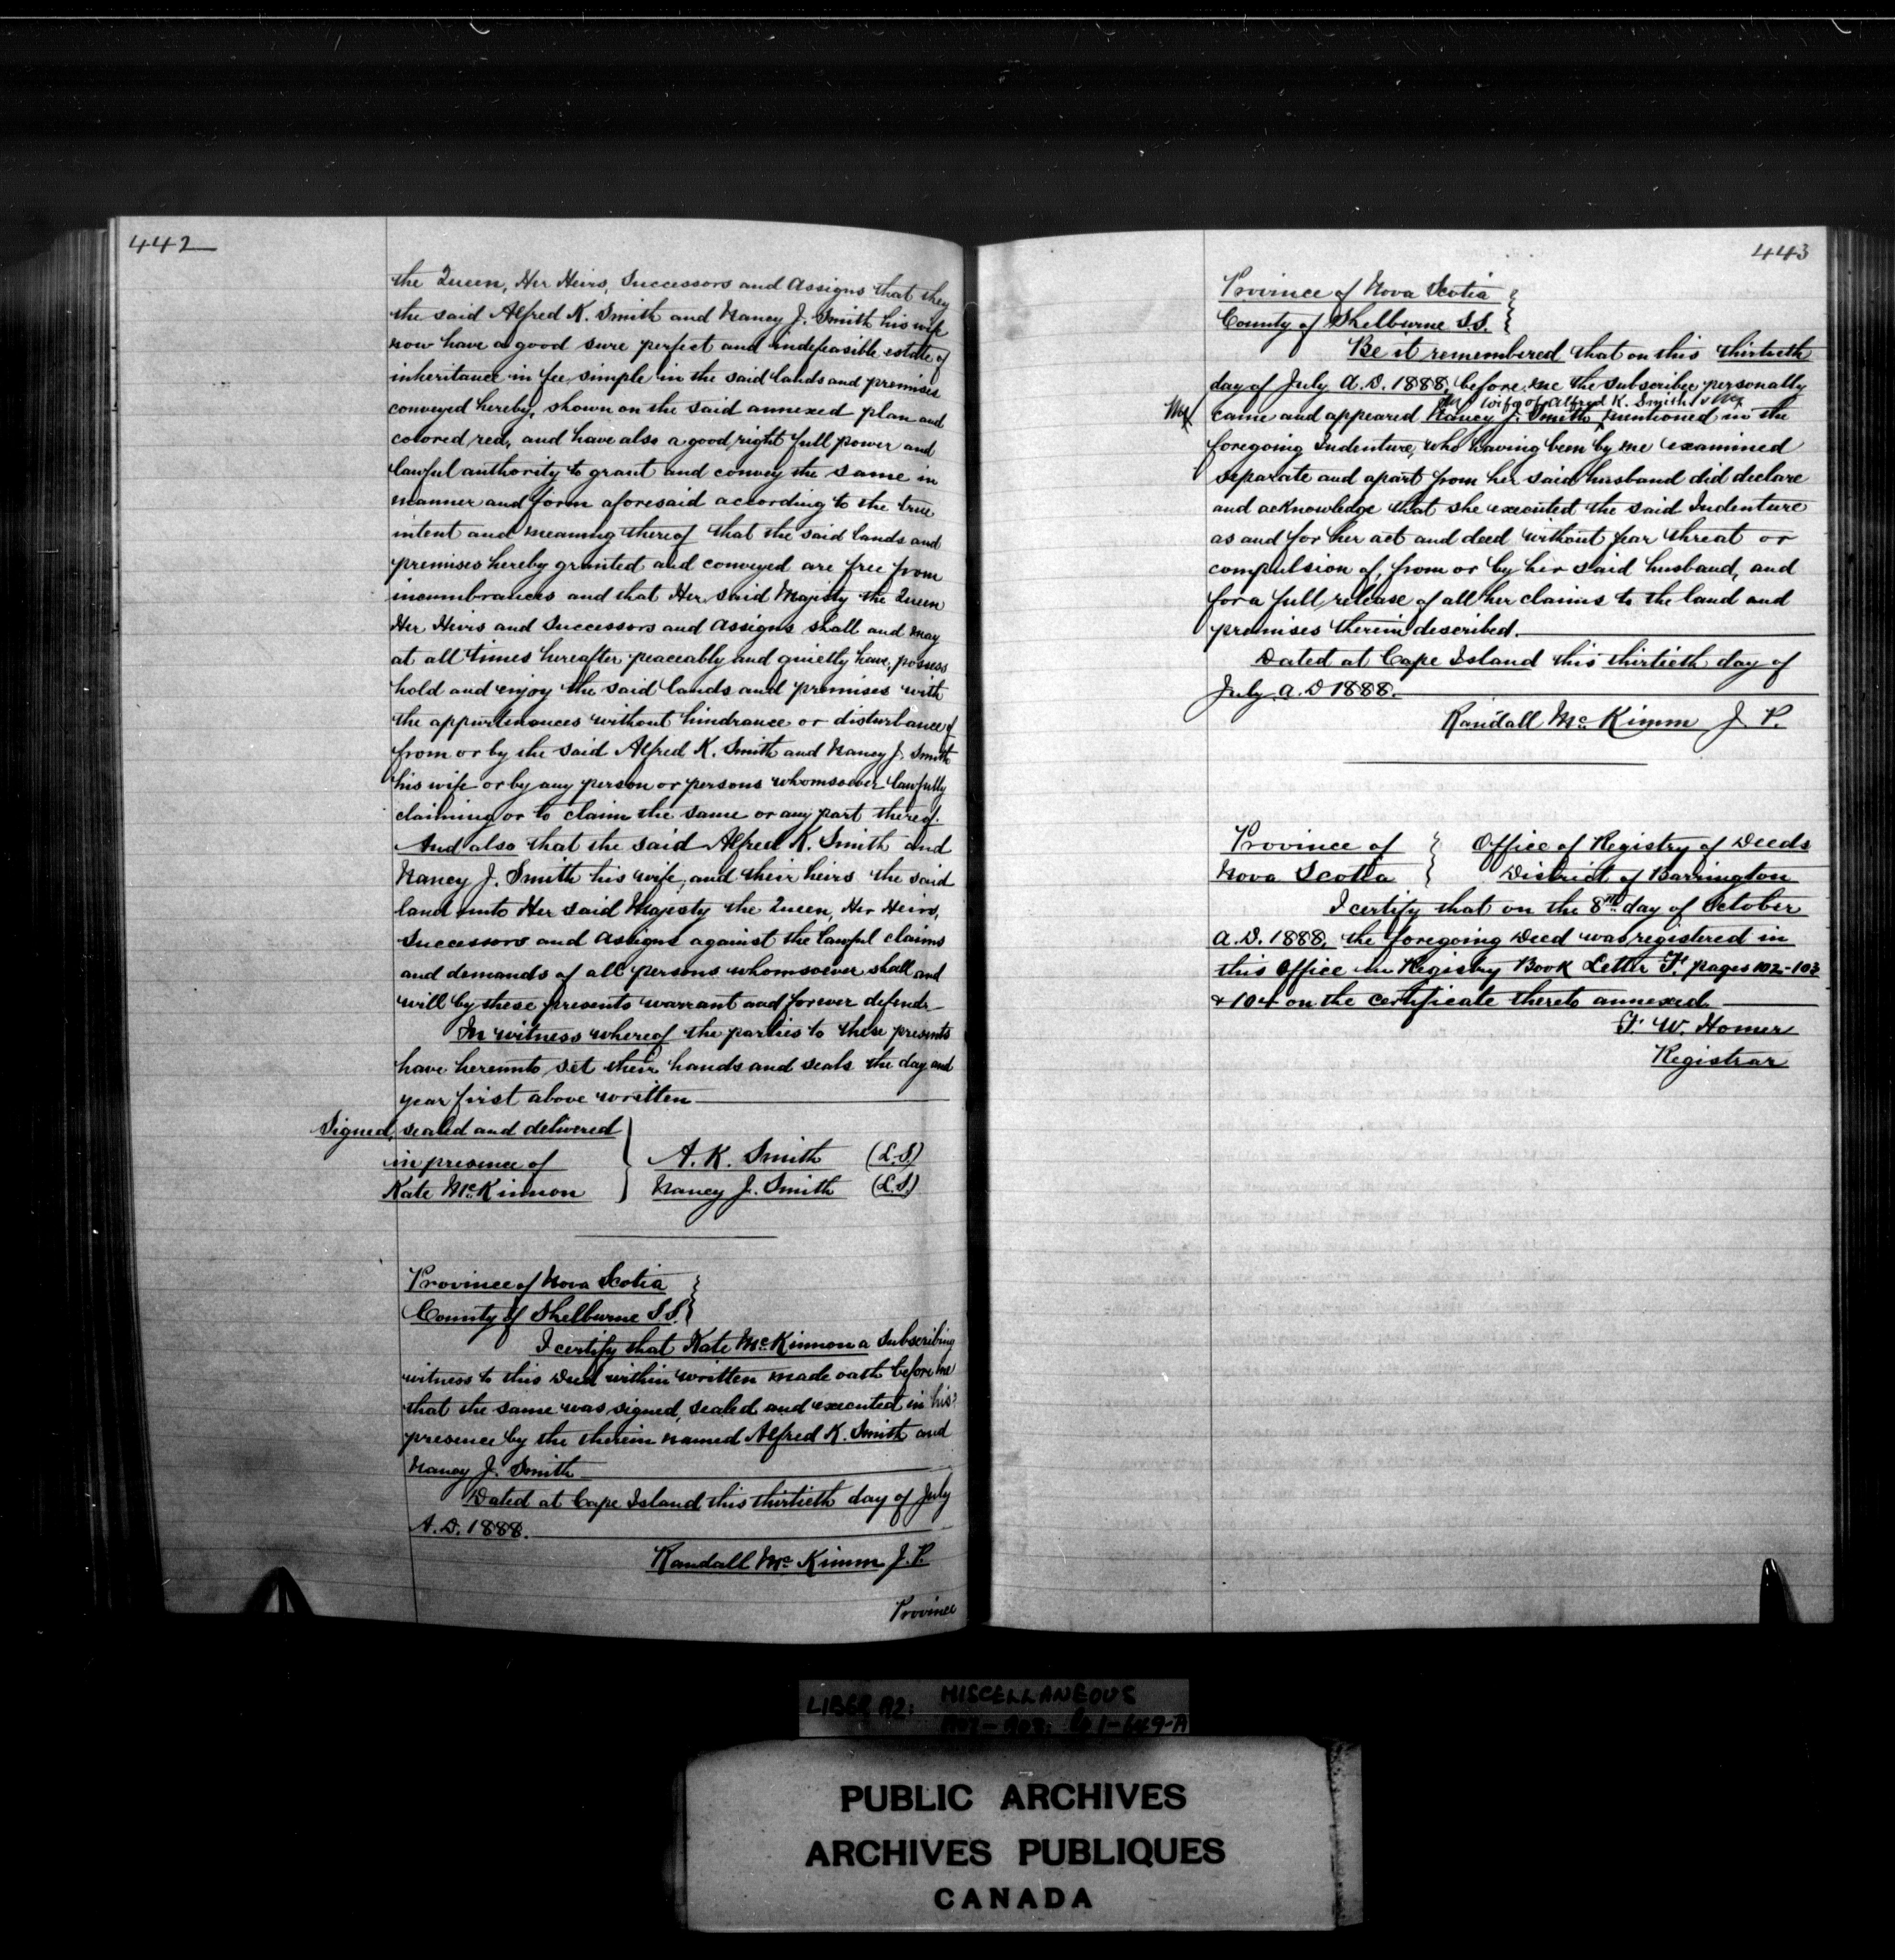 442
the Queen, Her Heirs, Successors and Assigns that they
the said Alfred K. Smith and Nancy J. Smith his wife
now have a good sure perfect and indefeasible estate of
inheritance in fee simple in the said lands and premises
conveyed hereby, shown on the said annexed plan and
colored red, and have also a good right full power and
lawful authority to grant and convey the same in
manner and form aforesaid according to the true
intent and meaning thereof that the said lands and
premises hereby granted and conveyed are free from
incumbrances and that Her said Majesty the Queen
Her Heirs and Successors and Assigns shall and may
at all times hereafter peaceably and quietly have, possess
hold and enjoy the said lands and premises with
the appurtenances without hindrance or disturbance of
from or by the said Alfred K. Smith and Nancy J. Smith
his wife or by any person or persons whomsoever lawfully
claiming or to claim the same or any part thereof.
And also that the said Alfred K. Smith and
Nancy J. Smith his wife, and their heirs the said
land unto Her said Majesty the Queen, Her Heirs,
Successors and Assigns against the lawful claims
and demands of all persons whomsoever shall and
will by these presents warrant and forever defend.
In witness whereof the parties to these presents
have hereunto set their hands and seals the day and
year first above written
Signed, sealed and delivered
in presence of
Kate McKinnon
A. K. Smith (L.S)
Nancy J. Smith (L.S.)
Province of Nova Scotia
County of Shelburne S.S.
I certify that Kate McKinnon a Subscribing
witness to this Deed within written made oath before me
that the same was signed, sealed and executed in his
presence by the therein named Alfred K. Smith and
Nancy J. Smith
Dated at Cape Island this thirtieth day of July
A.D. 1888.
Randall Mc Kimm J. P.
Province
443
Province of Nova Scotia
County of Shelburne S.S.
Be it remembered that on this thirtieth
day of July A.D. 1888, before me the subscriber personally
wife of Alfred K. Smith
came and appeared Nancy J. Smith mentioned in the
foregoing Indenture, who having been by me examined
separate and apart from her said husband did declare
and acknowledge that she executed the said Indenture
as and for her act and deed without fear threat or
compulsion of, from or by her said husband, and
for a full release of all her claims to the land and
premises therein described.
Dated at Cape Island this thirtieth day of
July A.D 1888.
Randall Mc Kimm J. P.
Province of
Nova Scotia
Office of Registry of Deeds
District of Barrington
I certify that on the 8th day of October
A.D. 1888, the foregoing Deed was registered in
this Office in Registry Book Letter F. pages 102-103
& 104 on the certificate thereto annexed.
F. W. Homer
Registrar
LIBER A2: MISCELLANEOUS
PUBLIC ARCHIVES
ARCHIVES PUBLIQUES
CANADA